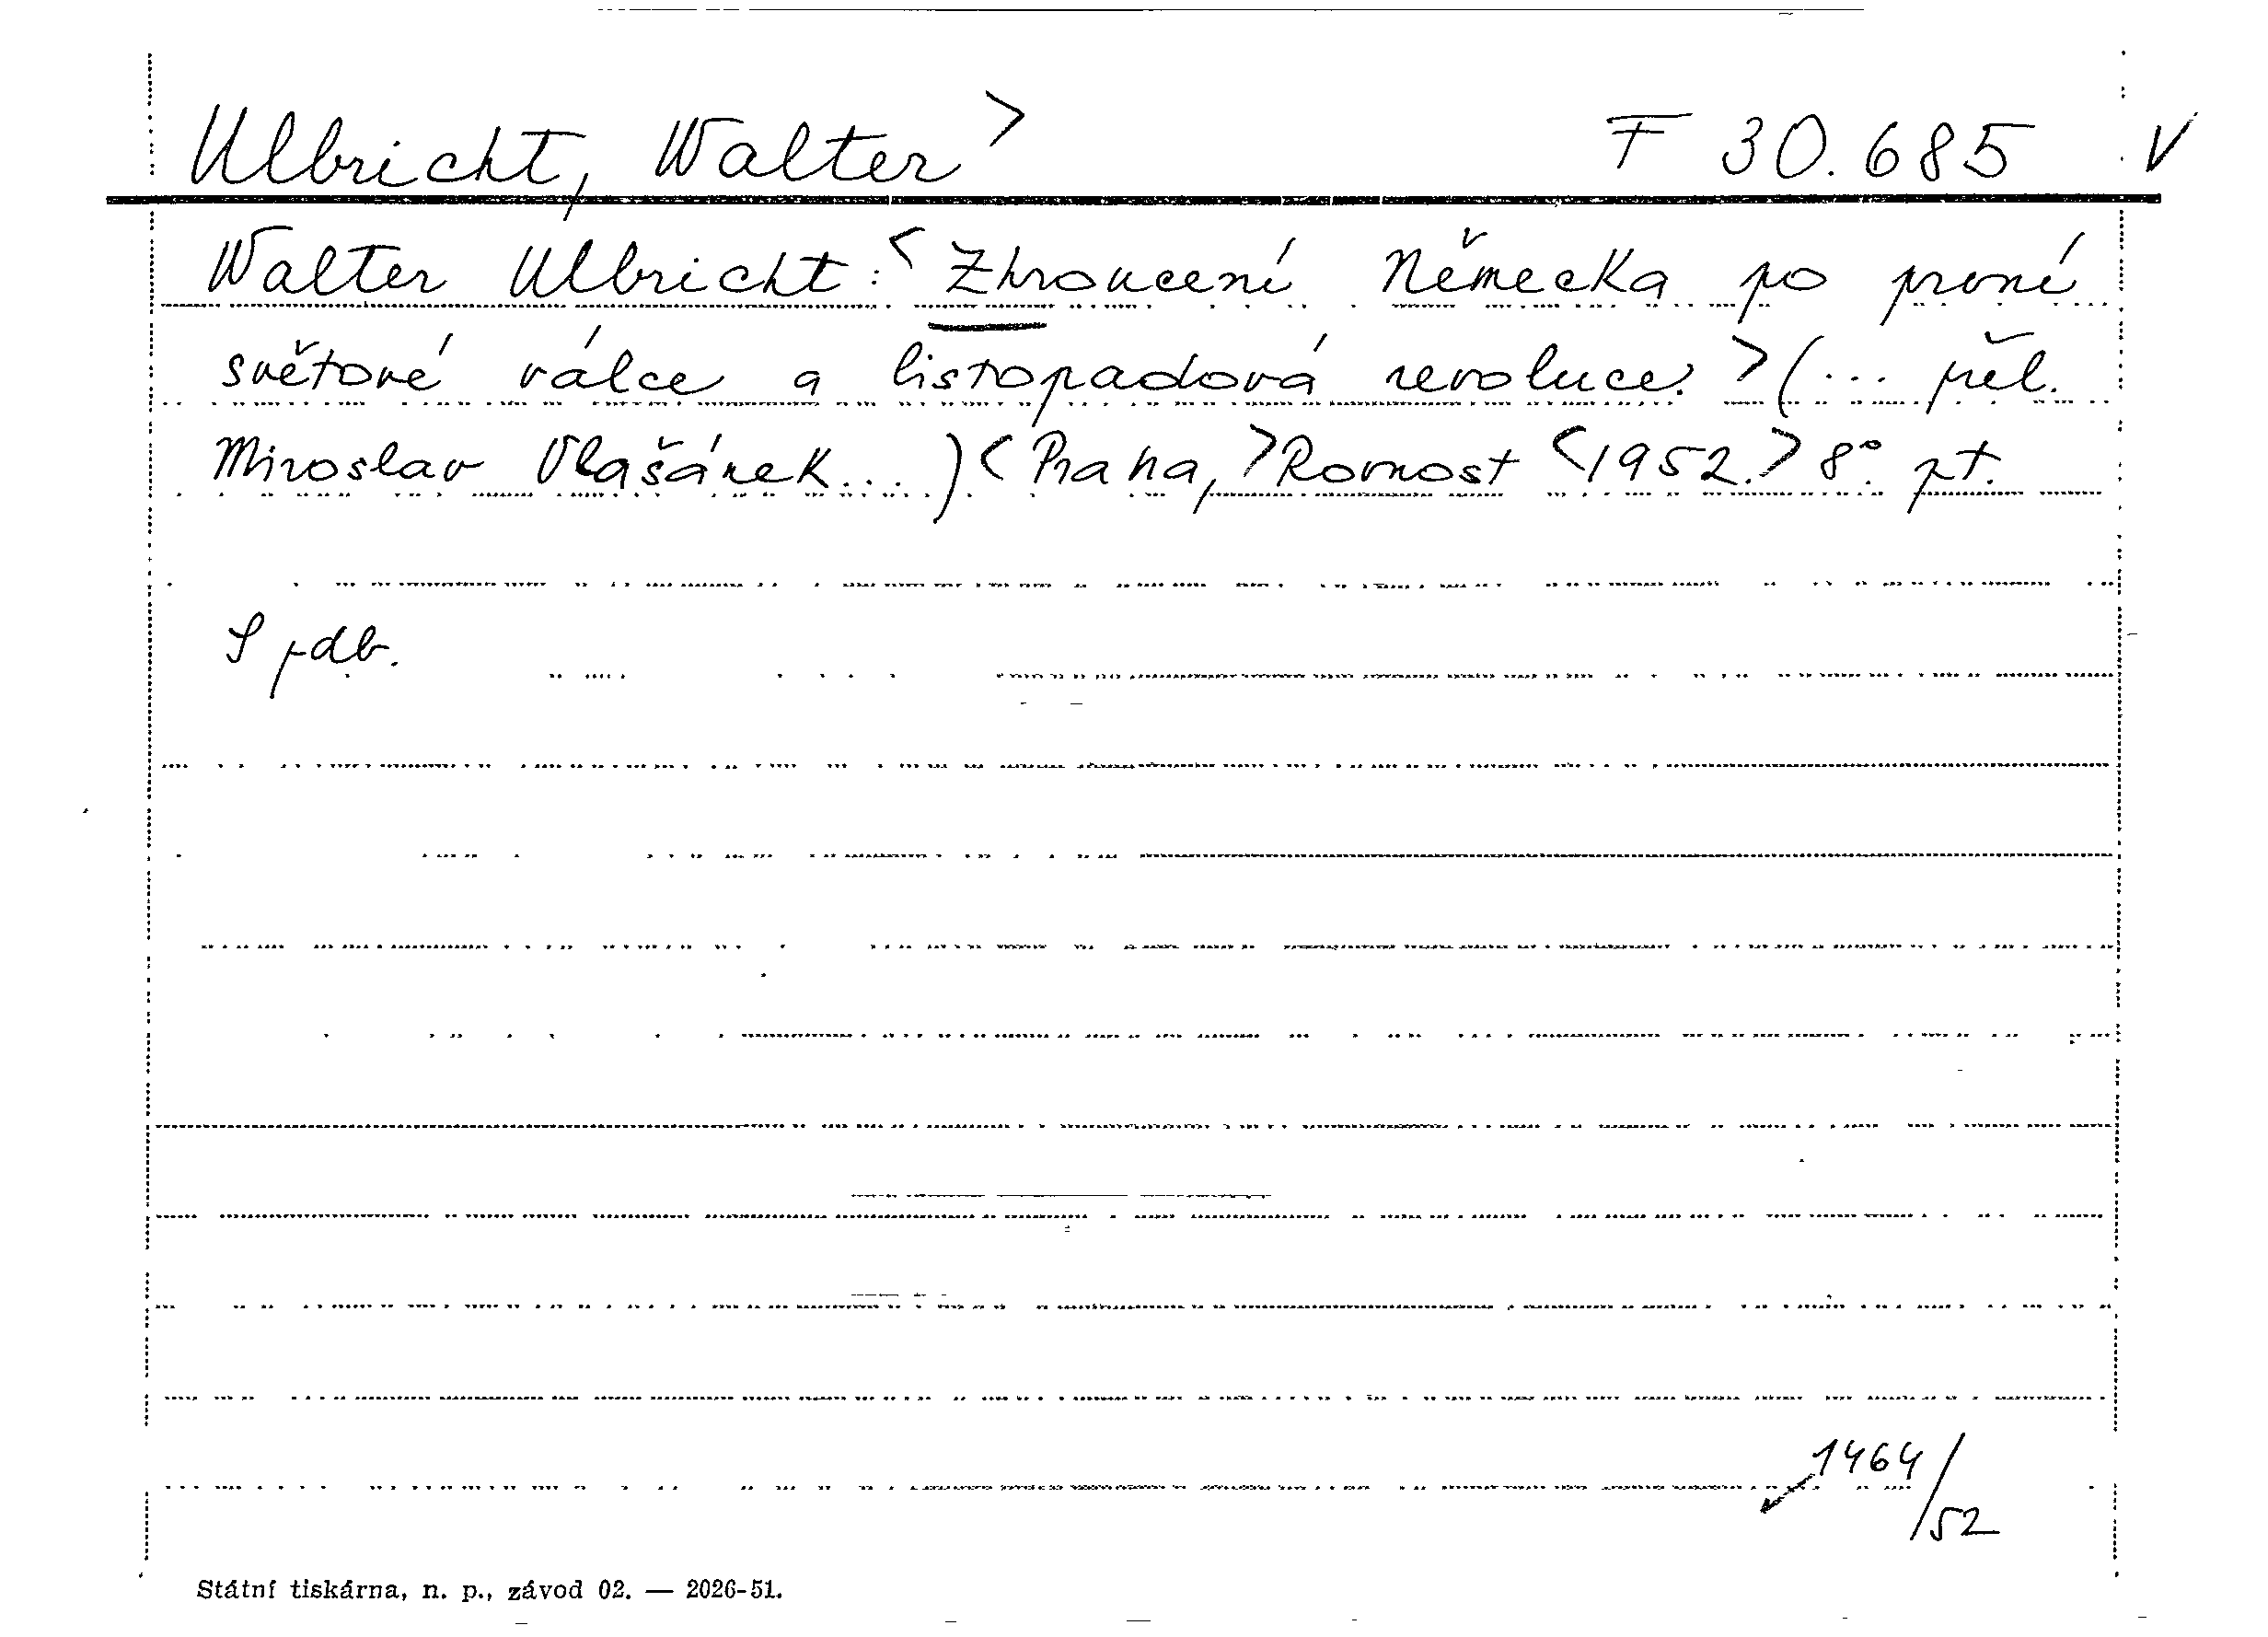 Ulbricht, Walter > F 30.685 V
Walter Ulbricht: < Zhroucení Německa po první
světové válce a listopadová revoluce. > (... přel.
Miroslav Vlašánek...) < Praha, > Rovnost < 1952. > 8°. pt.
S pdb.
1464/52
Státní tiskárna, n. p., závod 02. — 2026-51.